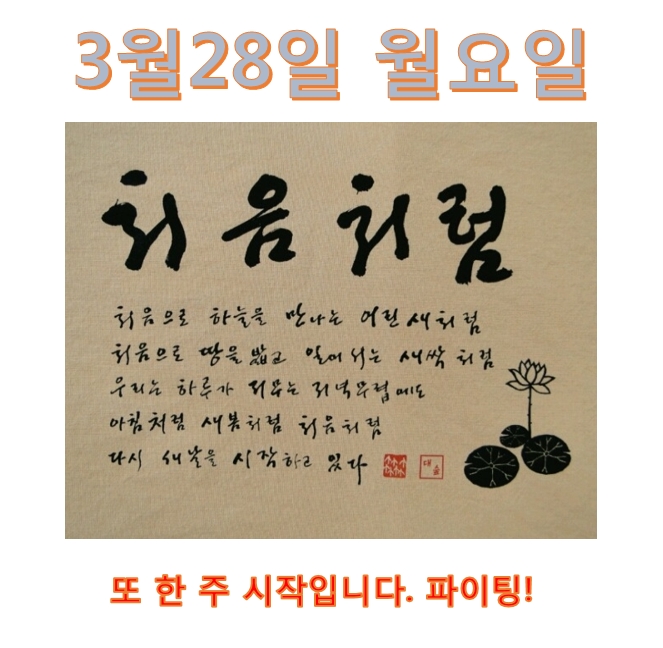 3월28일 월요일
처음처럼
처음으로 하늘을 만나는 어린 새처럼
처음으로 땅을 밟고 일어서는 새싹처럼
우리는 하루가 저무는 저녁무렵에도
아침처럼 새봄처럼 처음처럼
다시 새날을 시작하고 있다
또 한 주 시작입니다. 파이팅!